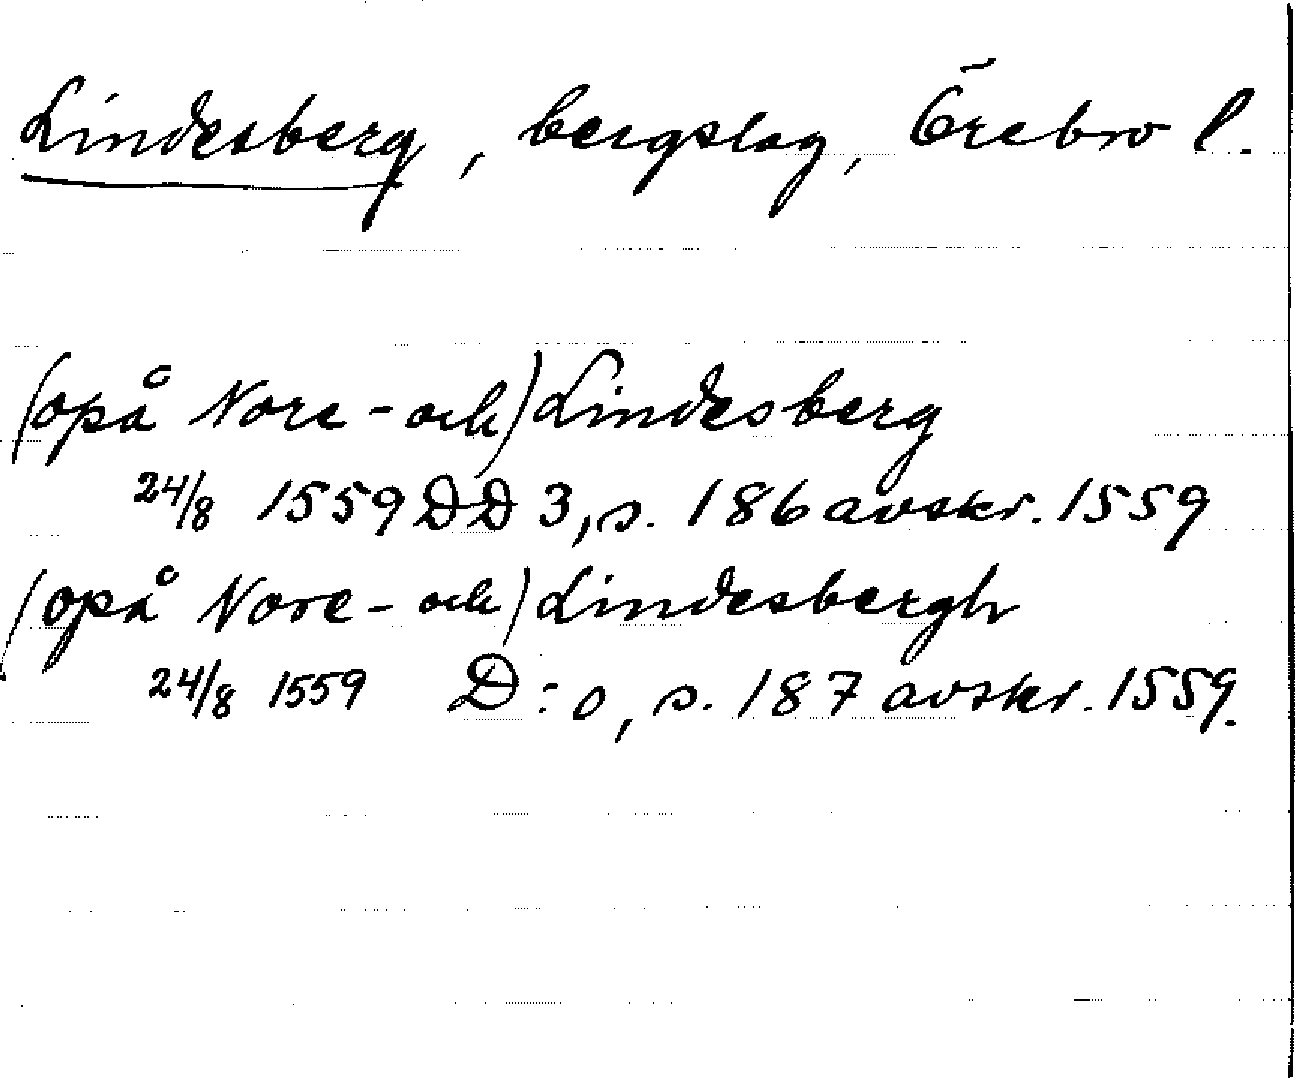 Lindesberg, bergslag, Örebro l.
(opå Nore- och) Lindesberg
24/8 1559 DD 3, s. 186 avskr. 1559
(opå Nore- och) Lindesbergh
24/8 1559 D:o, s. 187 avskr. 1559.